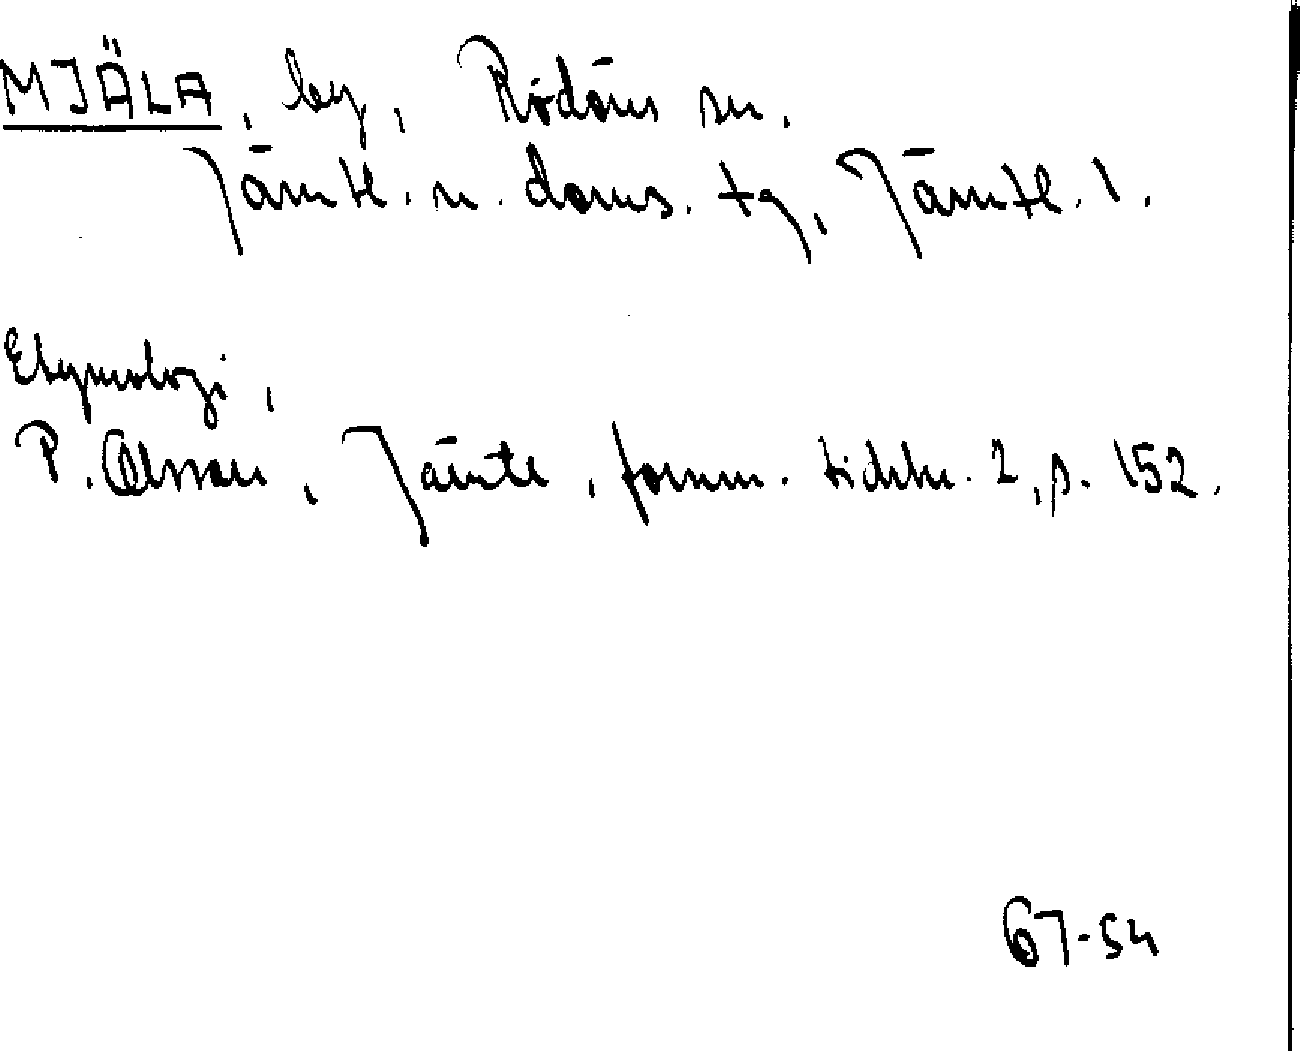 MJÄLA, by, Rödöns sn.
Jämtl. n. doms. tg, Jämtl. l.
Etymologi,
P. Olsson, Jämtl. fornm. tidskr. 2, s. 152.
67-54